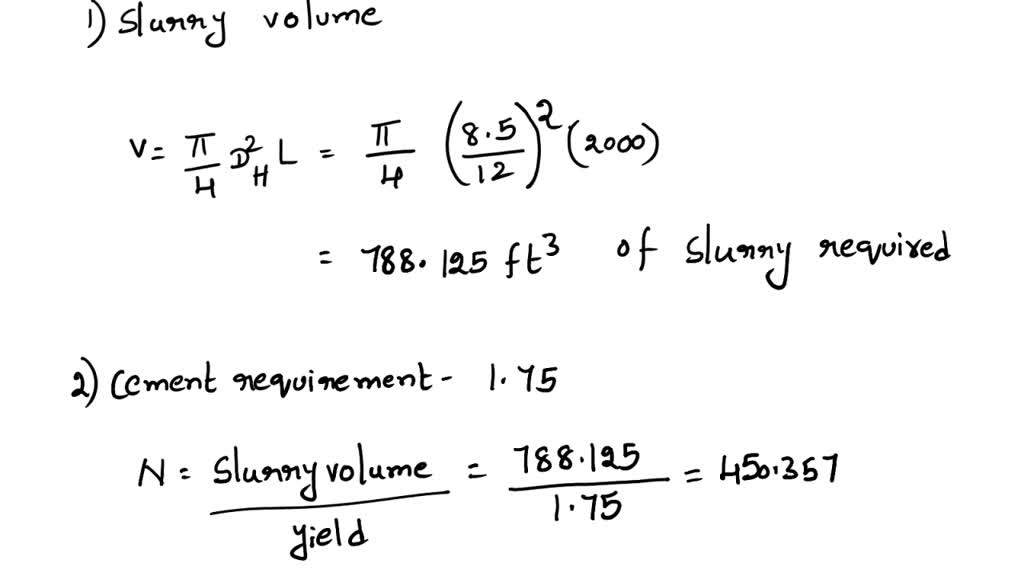 1) Slurry volume
V = π/4 D²_H L = π/4 (8.5/12)² (2000)
= 788.125 ft³ of slurry required
2) Cement requirement - 1.75
N = Slurry volume / yield = 788.125 / 1.75 = 450.357